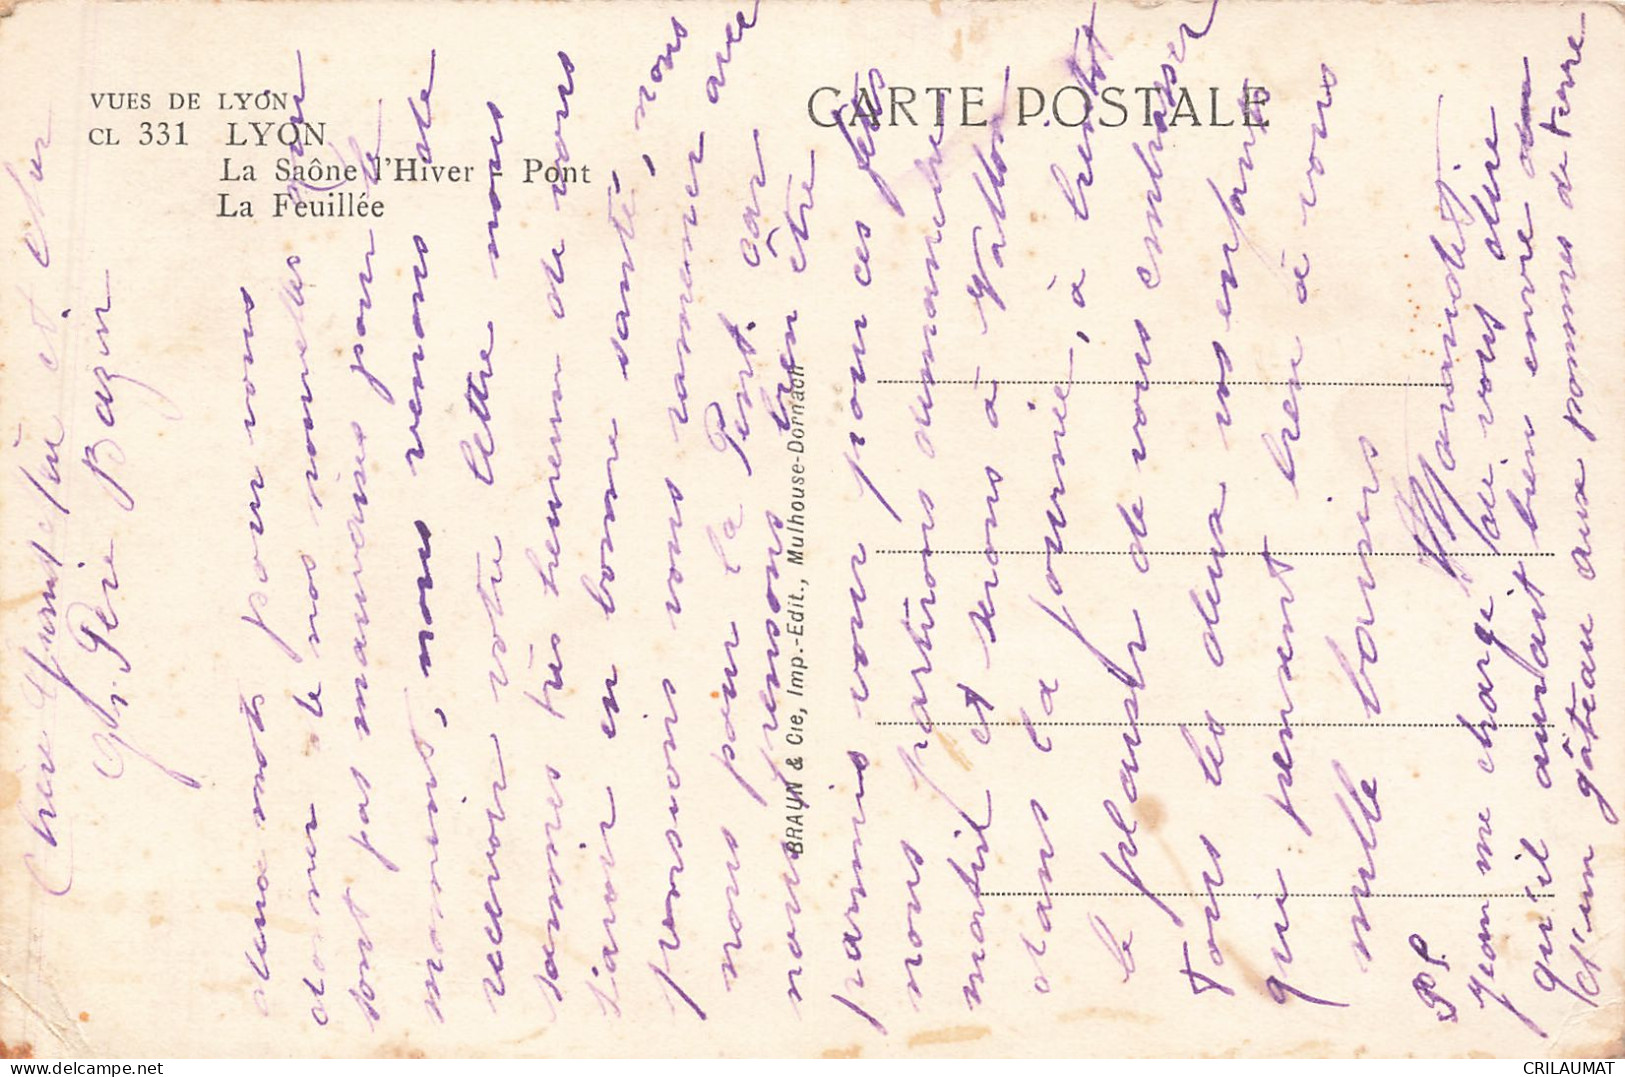 VUES DE LYON
CL 331 LYON
La Saône l'Hiver - Pont
La Feuillée
CARTE POSTALE
BRAUN & Cie, Imp.-Edit., Mulhouse-Dornach
Chère et cher
Père Bazin
deux mots pour vous
donner de nos nouvelles qui
sont pas mauvaises pour le
moment, nous venons de
recevoir votre lettre nous
sommes très heureux de vous
savoir en bonne santé, nous
pensions vous ramener avec
nous pour la Pent. car
nous pensons bien être
parmis vous pour ces fêtes
nous partirons dimanche
matin et serons à
dans la journée, à bientôt
le plaisir de vous embrasser
Tous les deux vos enfants
qui pensent bien à vous
mille baisers
P.S.
Jean me charge de vous dire
qu'il aurait bien envie
d'un gâteau aux pommes de terre